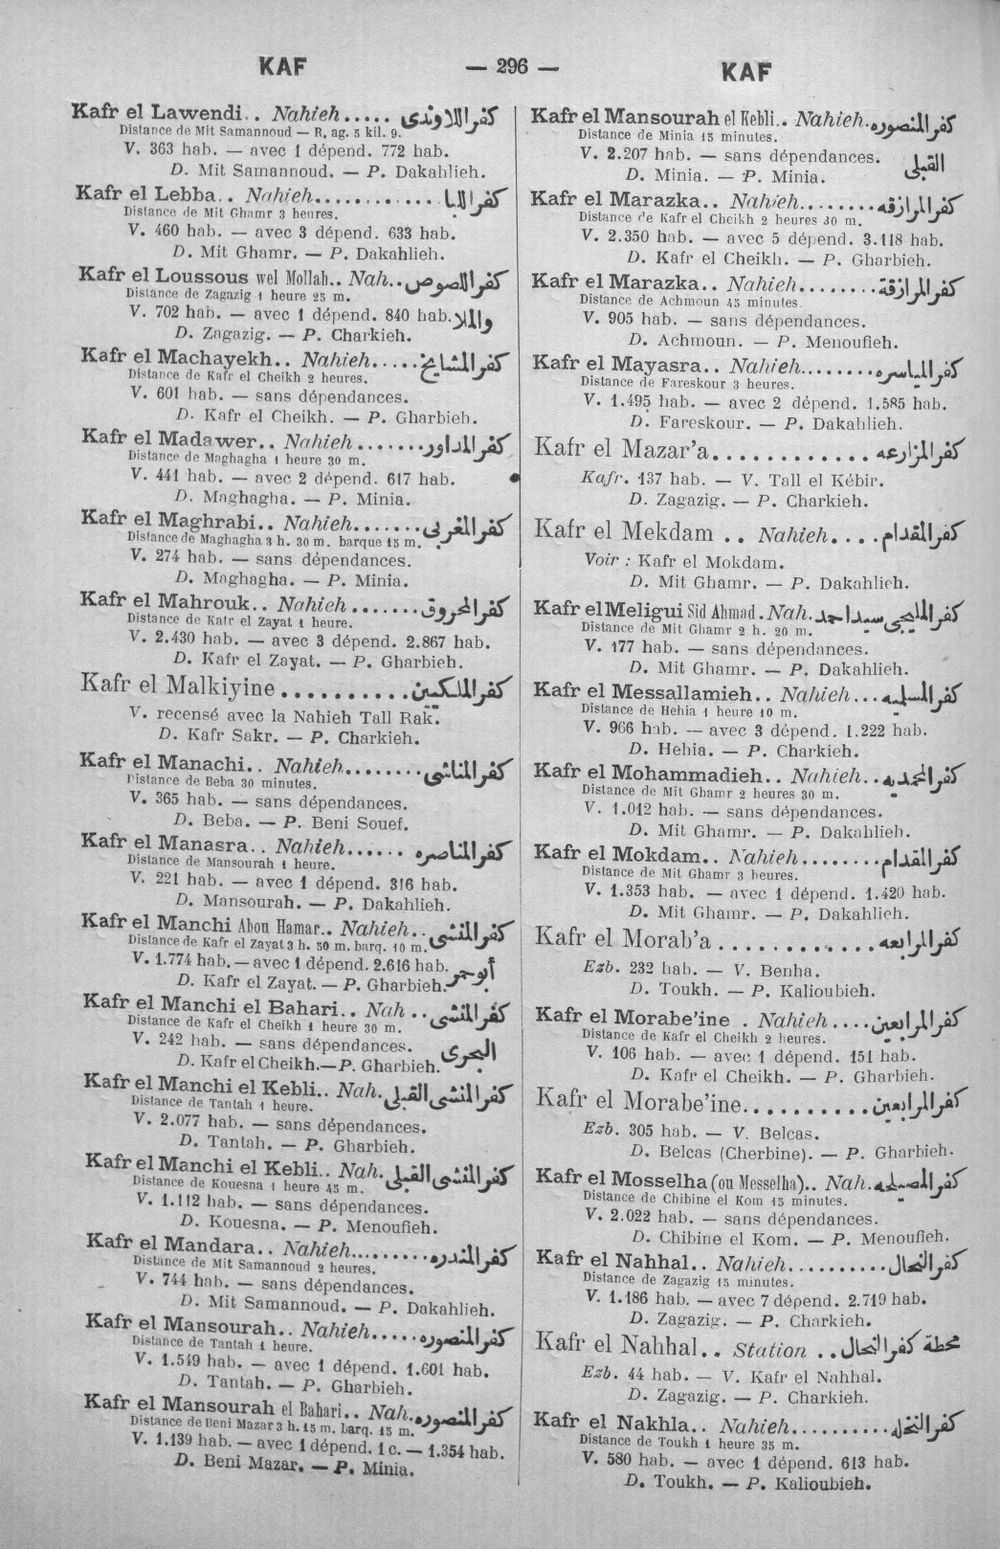 KAF — 296 — KAF
Kafr el Lawendi.. Nahieh..... كفر اللاوندى
Distance de Mit Samannoud — R. ag. 5 kil. 9.
V. 363 hab. — avec 1 dépend. 772 hab.
D. Mit Samannoud. — P. Dakahlieh.
Kafr el Lebba.. Nahieh............ كفر اللبا
Distance de Mit Ghamr 3 heures.
V. 460 hab. — avec 3 dépend. 633 hab.
D. Mit Ghamr. — P. Dakahlieh.
Kafr el Loussous wel Mollah.. Nah.. كفر اللصوص
Distance de Zagazig 1 heure 25 m.
V. 702 hab. — avec 1 dépend. 840 hab. والملا
D. Zagazig. — P. Charkieh.
Kafr el Machayekh.. Nahieh..... كفر المشايخ
Distance de Kafr el Cheikh 2 heures.
V. 601 hab. — sans dépendances.
D. Kafr el Cheikh. — P. Gharbieh.
Kafr el Madawer.. Nahieh....... كفر المداور
Distance de Maghagha 1 heure 30 m.
V. 441 hab. — avec 2 dépend. 617 hab.
D. Maghagha. — P. Minia.
Kafr el Maghrabi.. Nahieh....... كفر المغربى
Distance de Maghagha 3 h. 30 m. barque 15 m.
V. 274 hab. — sans dépendances.
D. Maghagha. — P. Minia.
Kafr el Mahrouk.. Nahieh....... كفر المحروق
Distance de Kafr el Zayat 1 heure.
V. 2.430 hab. — avec 3 dépend. 2.867 hab.
D. Kafr el Zayat. — P. Gharbieh.
Kafr el Malkiyine.......... كفر الملكيين
V. recensé avec la Nahieh Tall Rak.
D. Kafr Sakr. — P. Charkieh.
Kafr el Manachi.. Nahieh........ كفر المناشى
Distance de Beba 30 minutes.
V. 365 hab. — sans dépendances.
D. Beba. — P. Beni Souef.
Kafr el Manasra.. Nahieh...... كفر المناصره
Distance de Mansourah 1 heure.
V. 221 hab. — avec 1 dépend. 316 hab.
D. Mansourah. — P. Dakahlieh.
Kafr el Manchi Abou Hamar.. Nahieh.. كفر المنشى
Distance de Kafr el Zayat 3 h. 50 m. barq. 10 m.
V. 1.774 hab. — avec 1 dépend. 2.616 hab. أبو حمر
D. Kafr el Zayat. — P. Gharbieh.
Kafr el Manchi el Bahari.. Nah.. كفر المنشى
Distance de Kafr el Cheikh 1 heure 30 m.
V. 242 hab. — sans dépendances. البحرى
D. Kafr el Cheikh. — P. Gharbieh.
Kafr el Manchi el Kebli.. Nah. كفر المنشى القبلى
Distance de Tantah 1 heure.
V. 2.077 hab. — sans dépendances.
D. Tantah. — P. Gharbieh.
Kafr el Manchi el Kebli.. Nah. كفر المنشى القبلى
Distance de Kouesna 1 heure 45 m.
V. 1.112 hab. — sans dépendances.
D. Kouesna. — P. Menoufieh.
Kafr el Mandara.. Nahieh......... كفر المندره
Distance de Mit Samannoud 2 heures.
V. 744 hab. — sans dépendances.
D. Mit Samannoud. — P. Dakahlieh.
Kafr el Mansourah.. Nahieh..... كفر المنصوره
Distance de Tantah 1 heure.
V. 1.549 hab. — avec 1 dépend. 1.601 hab.
D. Tantah. — P. Gharbieh.
Kafr el Mansourah el Bahari.. Nah. كفر المنصوره
Distance de Beni Mazar 3 h. 15 m. barq. 15 m.
V. 1.139 hab. — avec 1 dépend. 1 c. — 1.354 hab.
D. Beni Mazar. — P. Minia.
Kafr el Mansourah el Kebli.. Nahieh. كفر المنصوره
Distance de Minia 15 minutes.
V. 2.207 hab. — sans dépendances. القبلى
D. Minia. — P. Minia.
Kafr el Marazka.. Nahieh........ كفر المرازقه
Distance de Kafr el Cheikh 2 heures 30 m.
V. 2.350 hab. — avec 5 dépend. 3.118 hab.
D. Kafr el Cheikh. — P. Gharbieh.
Kafr el Marazka.. Nahieh........ كفر المرازقة
Distance de Achmoun 45 minutes.
V. 905 hab. — sans dépendances.
D. Achmoun. — P. Menoufieh.
Kafr el Mayasra.. Nahieh........ كفر المياسره
Distance de Fareskour 3 heures.
V. 1.495 hab. — avec 2 dépend. 1.585 hab.
D. Fareskour. — P. Dakahlieh.
Kafr el Mazar'a............ كفر المزارعه
Kafr. 137 hab. — V. Tall el Kébir.
D. Zagazig. — P. Charkieh.
Kafr el Mekdam .. Nahieh.... كفر المقدام
Voir : Kafr el Mokdam.
D. Mit Ghamr. — P. Dakahlieh.
Kafr el Meligui Sid Ahmad. Nah. كفر المليجى سيد احمد
Distance de Mit Ghamr 2 h. 20 m.
V. 177 hab. — sans dépendances.
D. Mit Ghamr. — P. Dakahlieh.
Kafr el Messallamieh.. Nahieh... كفر المسلميه
Distance de Hehia 1 heure 10 m.
V. 966 hab. — avec 3 dépend. 1.222 hab.
D. Hehia. — P. Charkieh.
Kafr el Mohammadieh.. Nahieh.. كفر المحمديه
Distance de Mit Ghamr 2 heures 30 m.
V. 1.012 hab. — sans dépendances.
D. Mit Ghamr. — P. Dakahlieh.
Kafr el Mokdam.. Nahieh........ كفر المقدام
Distance de Mit Ghamr 3 heures.
V. 1.353 hab. — avec 1 dépend. 1.420 hab.
D. Mit Ghamr. — P. Dakahlieh.
Kafr el Morab'a ............ كفر المرابعه
Ezb. 232 hab. — V. Benha.
D. Toukh. — P. Kalioubieh.
Kafr el Morabe'ine . Nahieh.... كفر المرابعين
Distance de Kafr el Cheikh 2 heures.
V. 106 hab. — avec 1 dépend. 151 hab.
D. Kafr el Cheikh. — P. Gharbieh.
Kafr el Morabe'ine.......... كفر المرابعين
Ezb. 305 hab. — V. Belcas.
D. Belcas (Cherbine). — P. Gharbieh.
Kafr el Mosselha (ou Messelha).. Nah. كفر المصيلحه
Distance de Chibine el Kom 15 minutes.
V. 2.022 hab. — sans dépendances.
D. Chibine el Kom. — P. Menoufieh.
Kafr el Nahhal.. Nahieh.......... كفر النحال
Distance de Zagazig 15 minutes.
V. 1.186 hab. — avec 7 dépend. 2.719 hab.
D. Zagazig. — P. Charkieh.
Kafr el Nahhal.. Station .. محطة كفر النحال
Ezb. 44 hab. — V. Kafr el Nahhal.
D. Zagazig. — P. Charkieh.
Kafr el Nakhla.. Nahieh.......... كفر النخله
Distance de Toukh 1 heure 35 m.
V. 580 hab. — avec 1 dépend. 613 hab.
D. Toukh. — P. Kalioubieh.